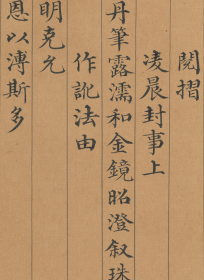 閱摺
凌晨封事上
丹筆露濡和金鏡昭澄叙珠
作訛法由
明克允
恩以溥斯多